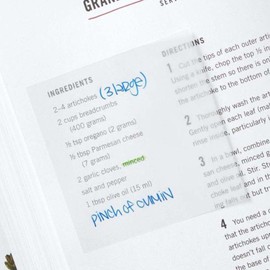 GRAN
SER
INGREDIENTS
2-4 artichokes (3 large)
2 cups breadcrumbs
(400 grams)
½ tsp oregano (2 grams)
½ tbsp Parmesan cheese
(7 grams)
2 garlic cloves, minced
salt and pepper
1 tbsp olive oil (15 ml)
Pinch of cumin
DIRECTIONS
1 Cut the tips of each outer arti
Using a knife, chop the top ½ in
shorten the stem so there is onl
the artichoke to the bottom of
2 Thoroughly wash the arti
Gently open each leaf
particularly i
3 In a bowl, combine
Stir
and in th
4 You need a
that the articho
artichokes up
doesn't fall o
the base of